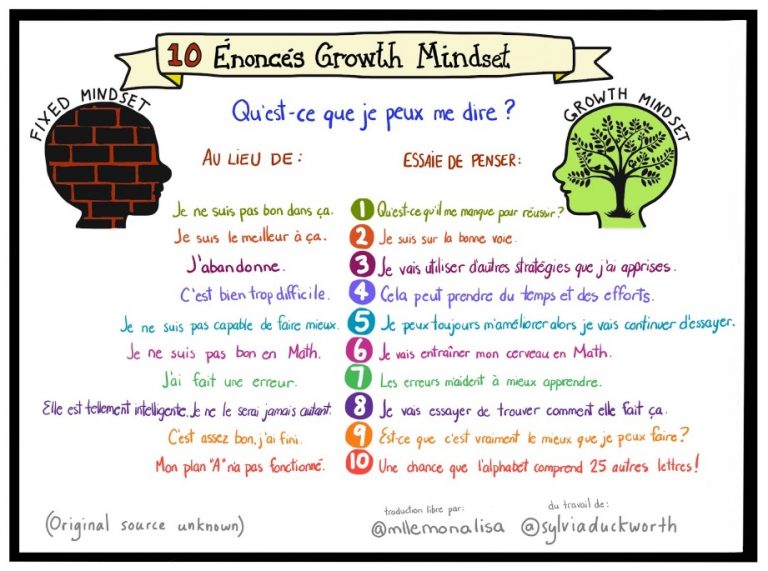 10 Énoncés Growth Mindset
FIXED MINDSET
GROWTH MINDSET
Qu'est-ce que je peux me dire ?
AU LIEU DE :
ESSAIE DE PENSER:
Je ne suis pas bon dans ça. 1 Qu'est-ce qu'il me manque pour réussir?
Je suis le meilleur à ça. 2 Je suis sur la bonne voie.
J'abandonne. 3 Je vais utiliser d'autres stratégies que j'ai apprises.
C'est bien trop difficile. 4 Cela peut prendre du temps et des efforts.
Je ne suis pas capable de faire mieux. 5 Je peux toujours m'améliorer alors je vais continuer d'essayer.
Je ne suis pas bon en Math. 6 Je vais entraîner mon cerveau en Math.
J'ai fait une erreur. 7 Les erreurs m'aident à mieux apprendre.
Elle est tellement intelligente. Je ne le serai jamais autant. 8 Je vais essayer de trouver comment elle fait ça.
C'est assez bon, j'ai fini. 9 Est-ce que c'est vraiment le mieux que je peux faire?
Mon plan "A" n'a pas fonctionné. 10 Une chance que l'alphabet comprend 25 autres lettres!
(Original source unknown)
traduction libre par:
@mllemonalisa
du travail de:
@sylviaduckworth